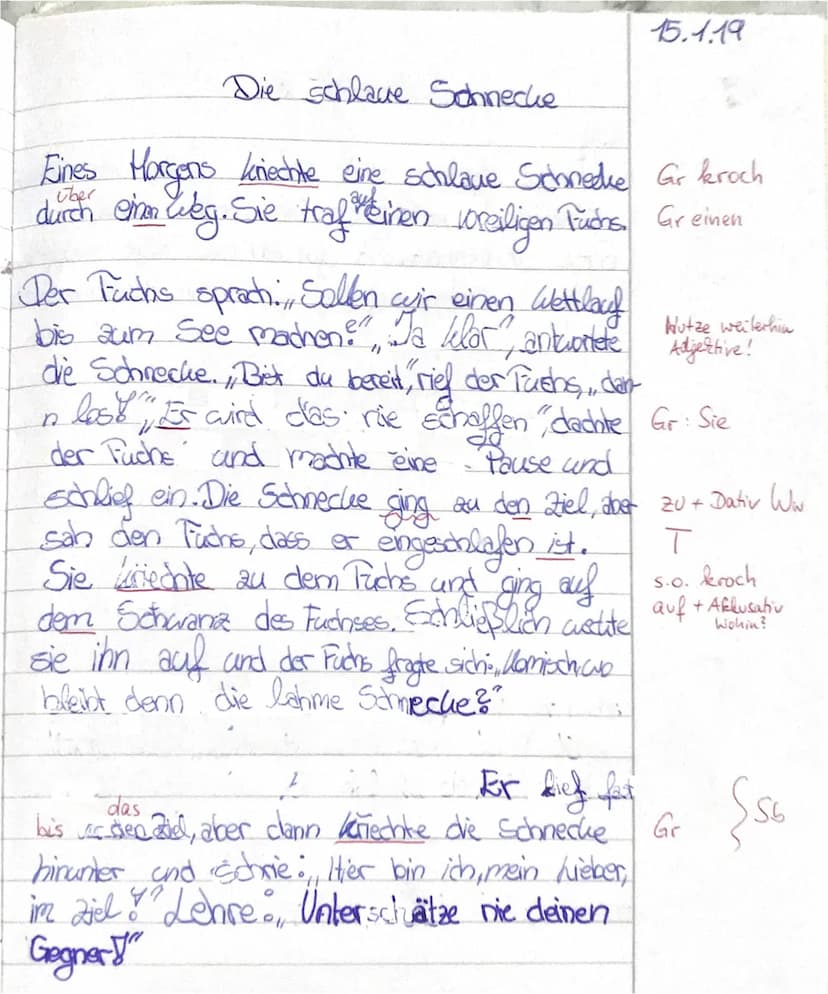 15.1.19
Die schlaue Schnecke
Eines Morgens kriechte eine schlaue Schnecke Gr kroch
über auf
durch einen Weg. Sie traf einen voreiligen Fuchs. Gr einen
Der Fuchs sprach: „Sollen wir einen Wettlauf
bis zum See machen?“ „Ja klar“, antwortete Nutze weiterhin
die Schnecke. „Bist du bereit“, rief der Fuchs, „dan- Adjektive!
n los!“ „Er wird das nie schaffen“, dachte Gr: Sie
der Fuchs und machte eine Pause und
schlief ein. Die Schnecke ging zu den Ziel, aber zu + Dativ Ww
sah den Fuchs, dass er eingeschlafen ist. T
Sie kriechte zu dem Fuchs und ging auf s.o. kroch
dem Schwanz des Fuchses. Schließlich weckte auf + Akkusativ
Wohin?
sie ihn auf und der Fuchs fragte sich: „Komisch, wo
bleibt denn die lahme Schnecke?“
Er lief fast
das
bis den Ziel, aber dann kriechte die Schnecke Gr } Sb
hinunter und schrie: „Hier bin ich, mein Lieber,
im Ziel!“ Lehre: „Unterschätze nie deinen
Gegner!“